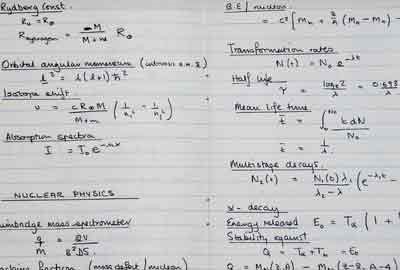 Rydberg Const.
R₀ = R∞
R_hydrogen = M / (M + m) R∞
Orbital angular momentum
l² = l(l+1)ħ²
Isotope shift.
ν = c R∞ M / (M + m) (1/n₁² - 1/n₂²)
Absorption spectra
I = I₀ e
NUCLEAR PHYSICS
mass spectrometer
m
fraction (mass defect / nucleon)
B.E / nucleon
= c² [ Mₙ + (Mₙ - Mₙ) -
Transformation rates
N(t) = N₀ e^-λt
Half life
τ = logₑ2 / λ = 0.693
Mean life time
t̄ = ∫ t dN / N₀
t̄ = 1/λ
Multistage decays.
N₂(t) = N₁(0) λ₁ / (λ₂ - λ) (e^-λ₁t -
α - decay
Energy released E₀ = Tα (1 +
Stability against
Q = Tα + T = E₀